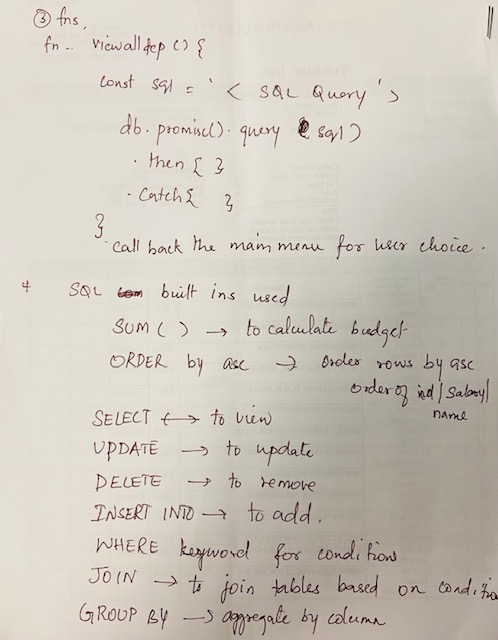 ③ fns,
fn .. viewalldep () {
const sql = ' < SQL Query ' >
db. promise(). query (sql)
. then { }
. catch { }
}
call back the main menu for user choice.
4 SQL built ins used
SUM ( ) → to calculate budget
ORDER by asc → order rows by asc
order of id / salary /
name
SELECT → to view
UPDATE → to update
DELETE → to remove
INSERT INTO → to add.
WHERE keyword for conditions
JOIN → to join tables based on condition
GROUP BY → aggregate by column